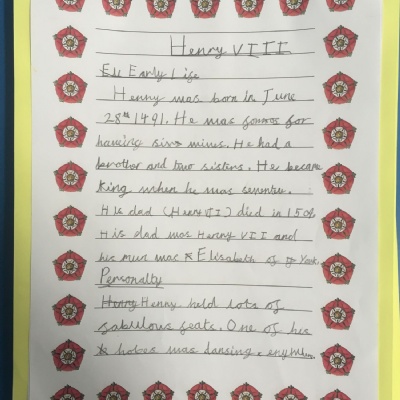 Henry VIII
Early Life
Henry was born in June
28th 1491. He was famous for
having six wives. He had a
brother and two sisters. He became
King when he was
His dad (Henry VII) died in 1509
His dad was Henry VII and
his mum was Elisabeth of York.
Personalty
Henry Henry held lots of
fabulous feats. One of his
hobes was dansing